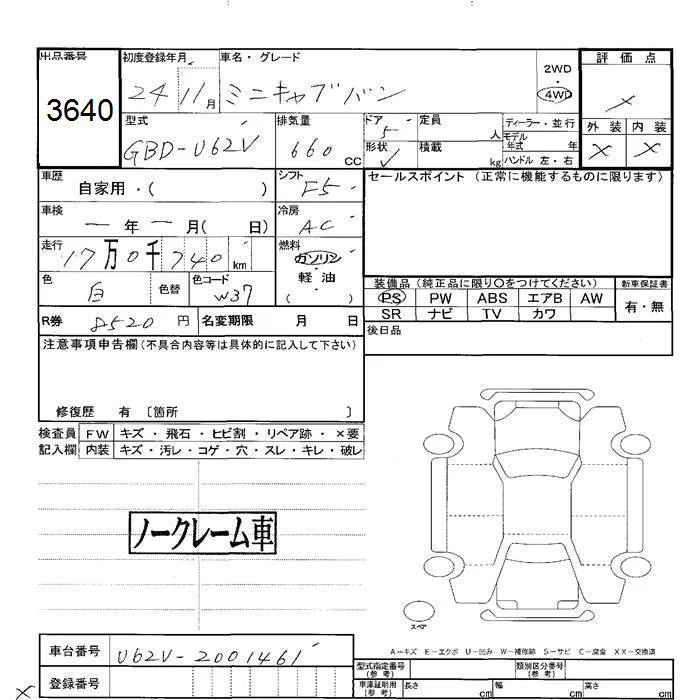 出品番号 初度登録年月 車名・グレード 2WD 4WD 評価点
3640 24 11月 ミニキャブバン ×
型式 排気量 ドア 定員 ディーラー・並行 外装 内装
GBD-U62V 660 CC 5 人 モデル年式 年 × ×
形状 積載 kg ハンドル 左・右
車歴 自家用・( ) シフト F5 セールスポイント (正常に機能するものに限ります)
車検 ー年ー月( 日) 冷房 AC
走行 17万0千740km 燃料 ガソリン
軽・油
( )
色 白 色替 色コード W37 装備品 (純正品に限り○をつけてください) 新車保証書
PS PW ABS エアB AW 有・無
SR ナビ TV カワ
R券 8520円 名変期限 月 日 後日品
注意事項申告欄(不具合内容等は具体的に記入して下さい)
修復歴 有 〔箇所 〕
検査員 FW キズ・飛石・ヒビ割・リペア跡・×要
記入欄 内装 キズ・汚レ・コゲ・穴・スレ・キレ・破レ
ノークレーム車
スペア
A-キズ E-エクボ U-凹み W-補修跡 S-サビ C-腐食 XX-交換済
車台番号 U62V-2001461
型式指定番号(参考) 類別区分番号(参考)
登録番号 車庫証明用(参考) 長さ cm 幅 cm 高さ cm
×